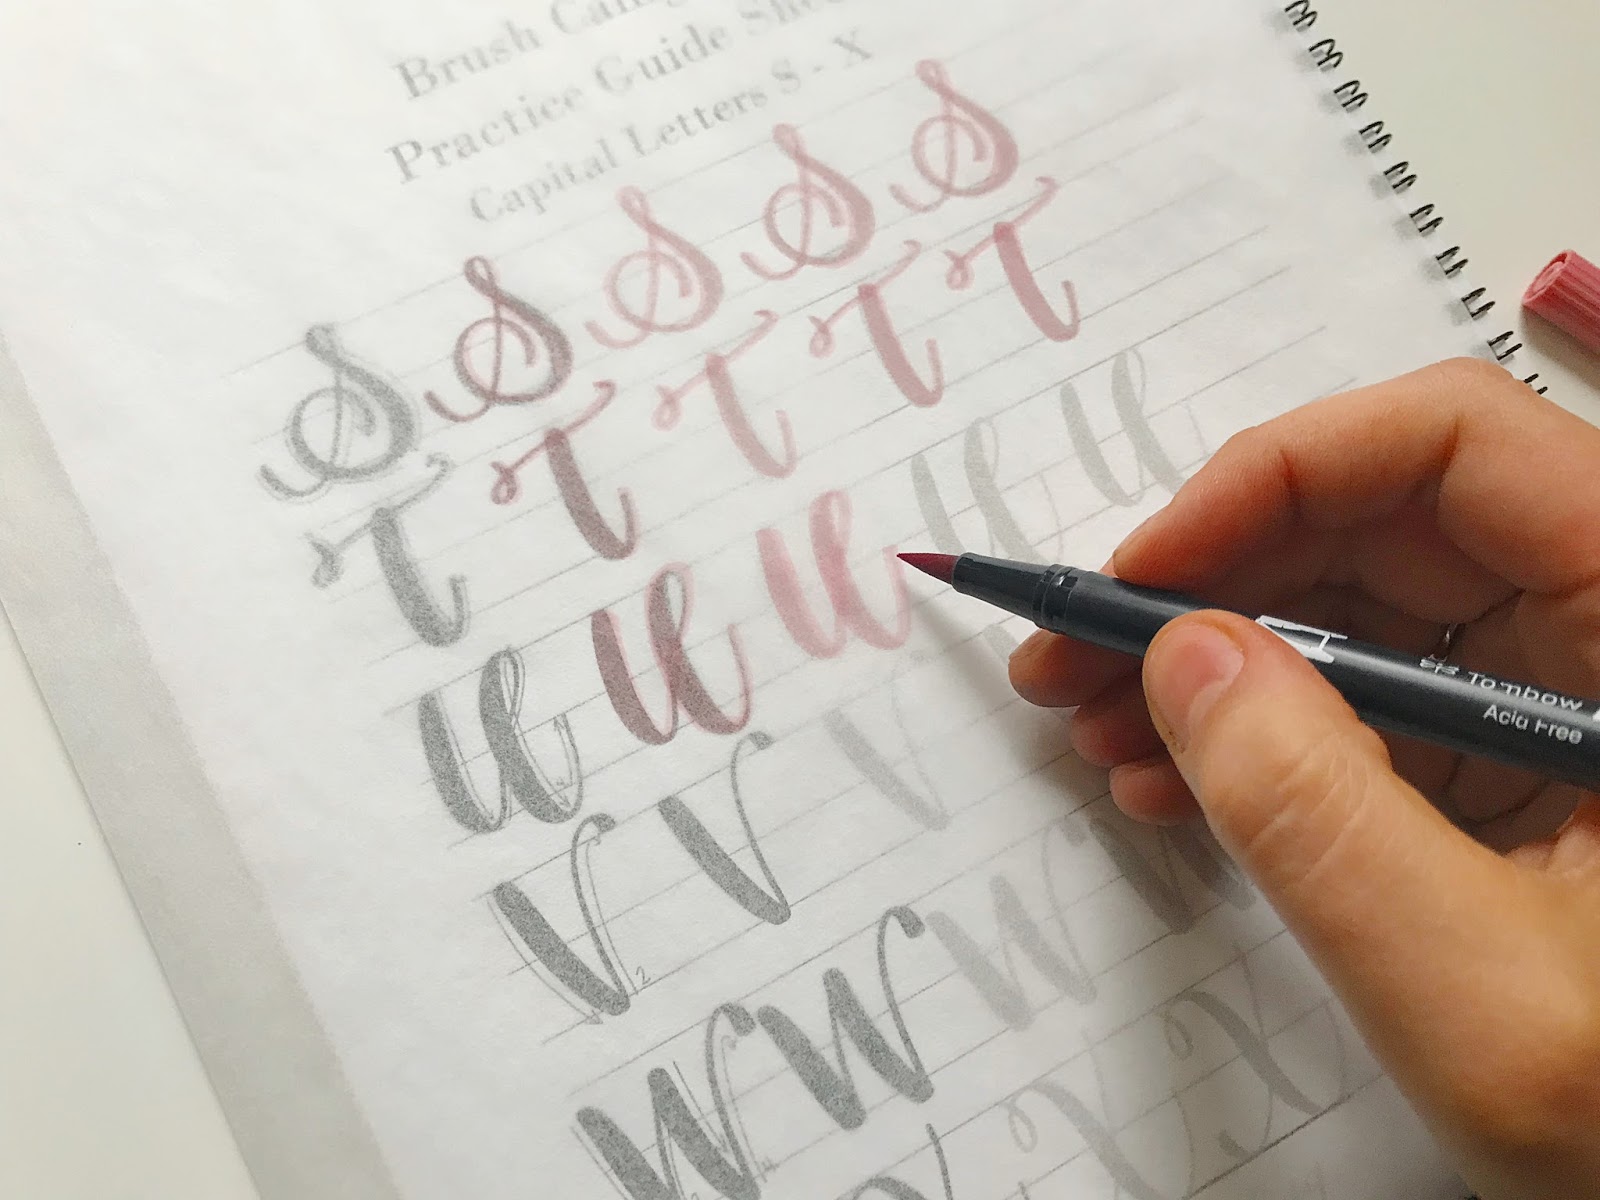 Brush
Practice Guide
Capital Letters S - X
S S S S S
T T T T T
U U U U U
V V V
2
W W W W
4
X X
Tombow
Acid Free